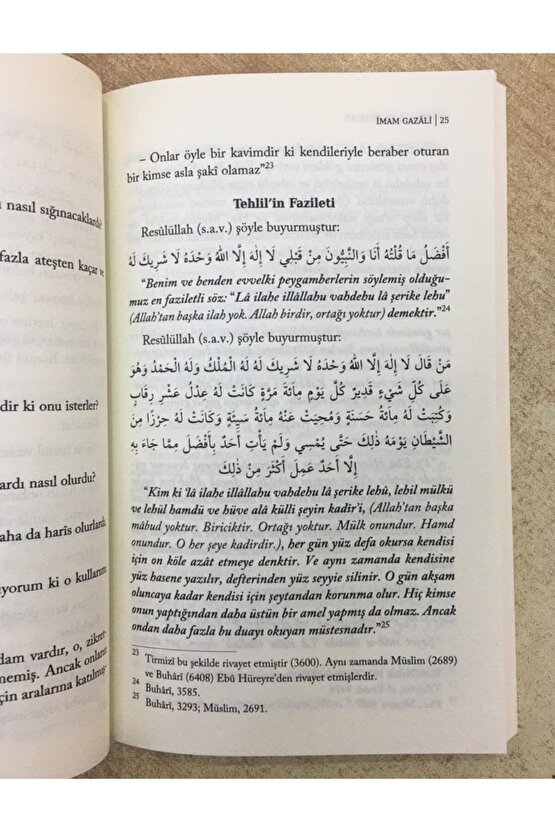 nasıl sığınacaklardı?
fazla ateşten kaçar ve
dir ki onu isterler?
ardı nasıl olurdu?
aha da harîs olurlardı,
yorum ki o kullarımı
dam vardır, o, zikret-
nemiş. Ancak onların
çin aralarına katılmış
İMAM GAZÂLİ | 25
– Onlar öyle bir kavimdir ki kendileriyle beraber oturan
bir kimse asla şakî olamaz”23
Tehlil’in Fazileti
Resûlüllah (s.a.v.) şöyle buyurmuştur:
أَفْضَلُ مَا قُلْتُهُ أَنَا وَالنَّبِيُّونَ مِنْ قَبْلِي لَا إِلٰهَ إِلَّا اللهُ وَحْدَهُ لَا شَرِيكَ لَهُ
“Benim ve benden evvelki peygamberlerin söylemiş olduğu-
muz en faziletli söz: “Lâ ilahe illâllahu vahdehu lâ şerike lehu”
(Allah’tan başka ilah yok. Allah birdir, ortağı yoktur) demektir.”24
Resûlüllah (s.a.v.) şöyle buyurmuştur:
مَنْ قَالَ لَا إِلٰهَ إِلَّا اللهُ وَحْدَهُ لَا شَرِيكَ لَهُ لَهُ الْمُلْكُ وَلَهُ الْحَمْدُ وَهُوَ
عَلَى كُلِّ شَيْءٍ قَدِيرٌ كُلَّ يَوْمٍ مِائَةَ مَرَّةٍ كَانَتْ لَهُ عِدْلُ عَشْرِ رِقَابٍ
وَكُتِبَتْ لَهُ مِائَةُ حَسَنَةٍ وَمُحِيَتْ عَنْهُ مِائَةُ سَيِّئَةٍ وَكَانَتْ لَهُ حِرْزًا مِنَ
الشَّيْطَانِ يَوْمَهُ ذٰلِكَ حَتَّى يُمْسِيَ وَلَمْ يَأْتِ أَحَدٌ بِأَفْضَلَ مِمَّا جَاءَ بِهِ
إِلَّا أَحَدٌ عَمِلَ أَكْثَرَ مِنْ ذٰلِكَ
“Kim ki ‘lâ ilahe illâllahu vahdehu lâ şerike lehû, lehil mülkü
ve lehül hamdü ve hüve alâ külli şeyin kadir’i, (Allah’tan başka
mâbud yoktur. Biriciktir. Ortağı yoktur. Mülk onundur. Hamd
onundur. O her şeye kadirdir.), her gün yüz defa okursa kendisi
için on köle azat etmeye denktir. Ve aynı zamanda kendisine
yüz hasene yazılır, defterinden yüz seyyie silinir. O gün akşam
oluncaya kadar kendisi için şeytandan korunma olur. Hiç kimse
onun yaptığından daha üstün bir amel yapmış da olmaz. Ancak
ondan daha fazla bu duayı okuyan müstesnadır.”25
23 Tirmizî bu şekilde rivayet etmiştir (3600). Aynı zamanda Müslim (2689)
ve Buhârî (6408) Ebû Hüreyre’den rivayet etmişlerdir.
24 Buhârî, 3585.
25 Buhârî, 3293; Müslim, 2691.